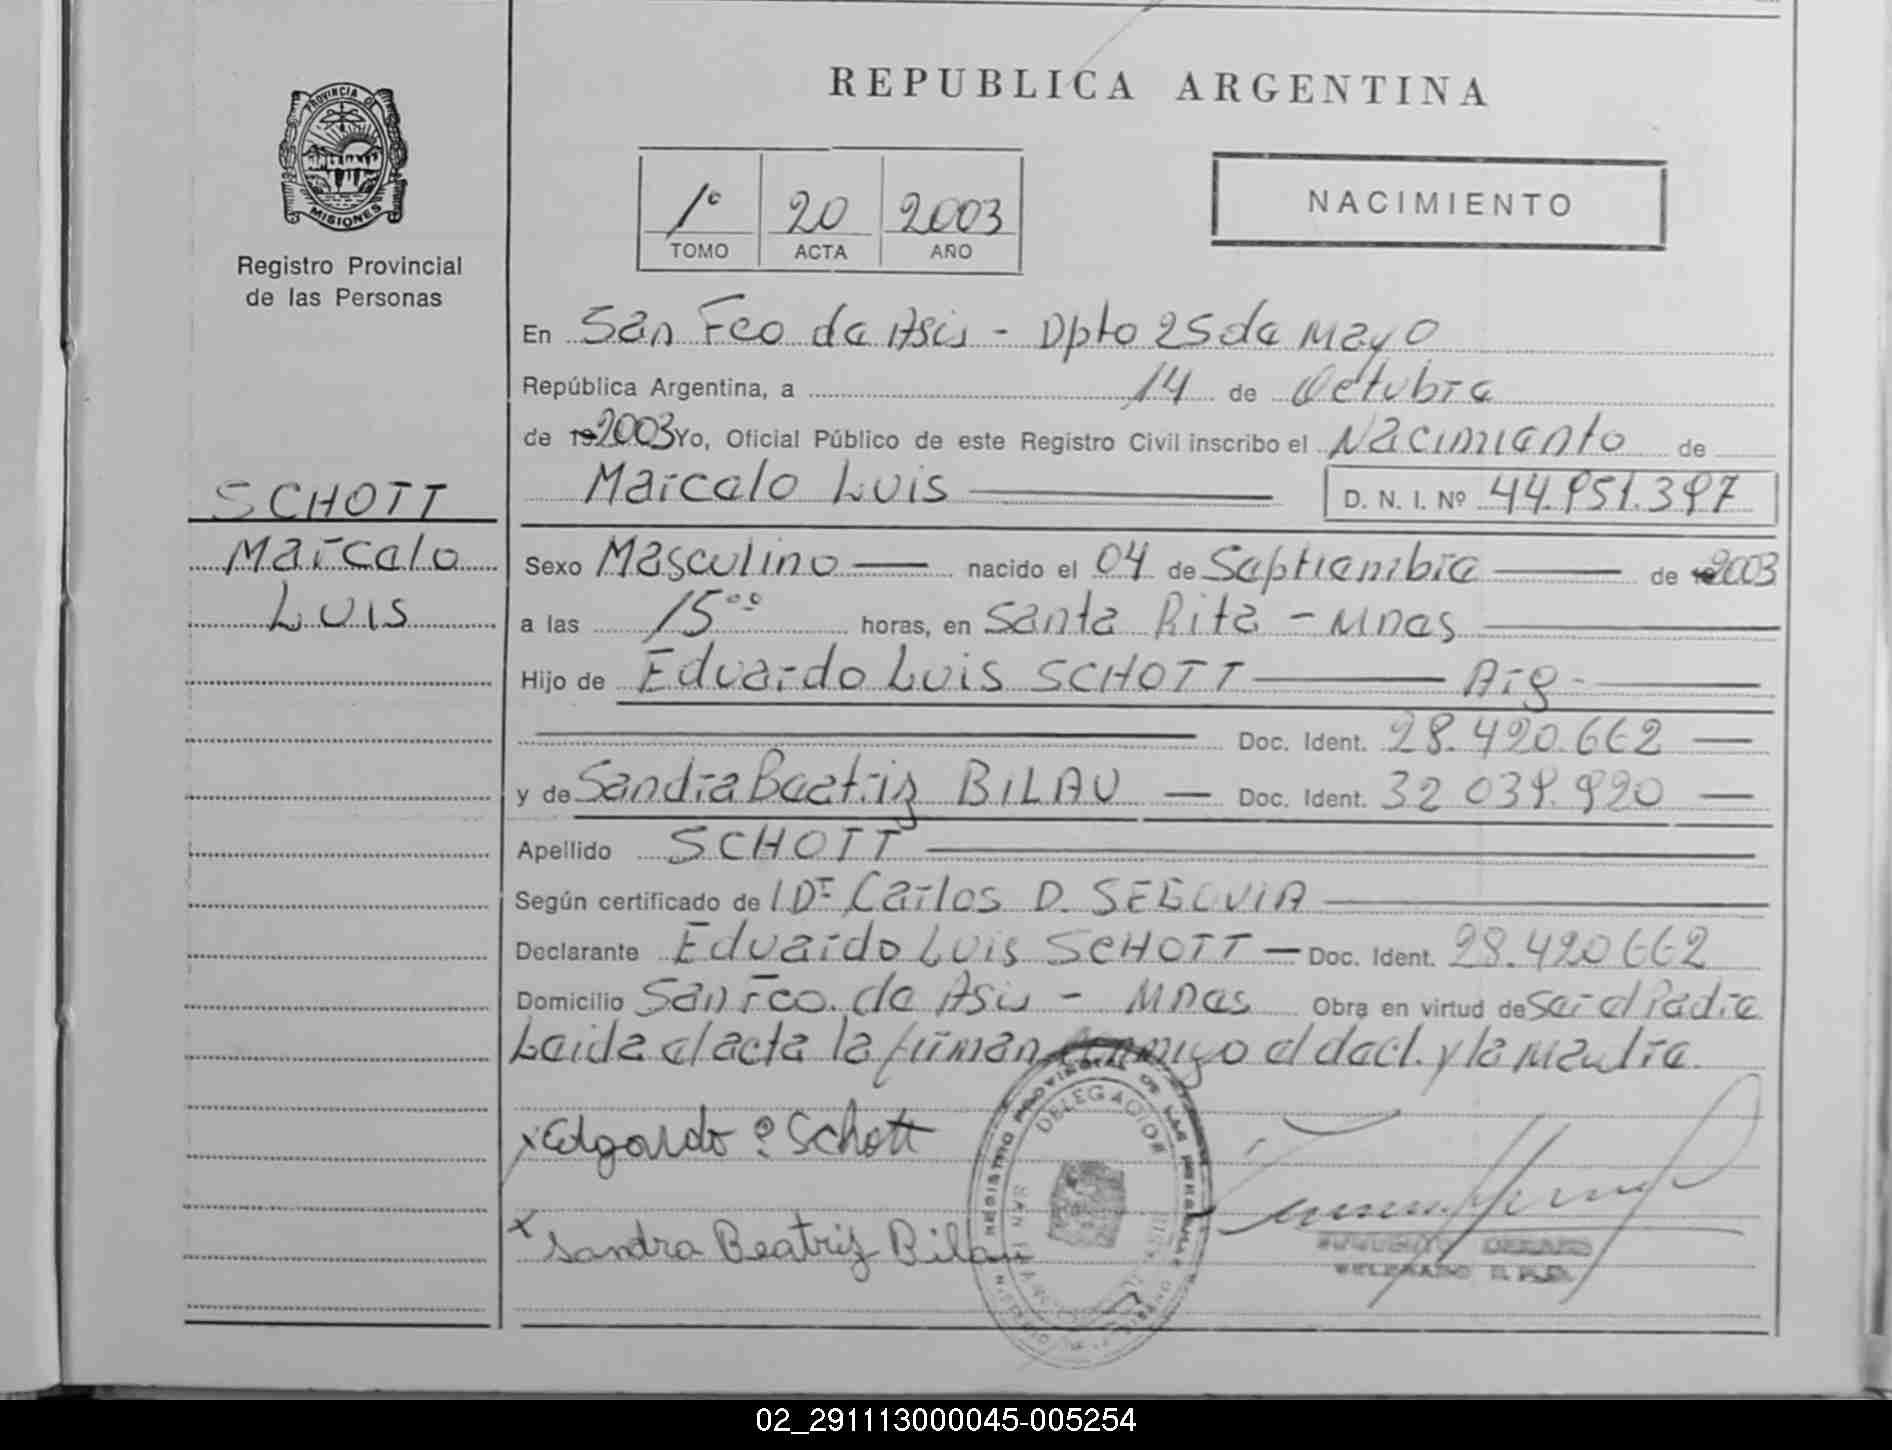 REPUBLICA ARGENTINA
PROVINCIA DE
MISIONES
Registro Provincial
de las Personas
1º 20 2003
TOMO ACTA AÑO
NACIMIENTO
En San Fco de Asis - Dpto 25 de Mayo
República Argentina, a 14 de Octubre
de 19 2003 Yo, Oficial Público de este Registro Civil inscribo el Nacimiento de
Marcelo Luis D. N. I. Nº 44.951.397
SCHOTT
Marcelo
Luis
Sexo Masculino nacido el 04 de Septiembre de 19 2003
a las 15⁰⁰ horas, en Santa Rita - Mnes
Hijo de Eduardo Luis SCHOTT Arg-
Doc. Ident. 28.420.662
y de Sandra Beatriz BILAU Doc. Ident. 32 039.920
Apellido SCHOTT
Según certificado de Dr Carlos D. SEGOVIA
Declarante Eduardo Luis SCHOTT - Doc. Ident. 28.420 662
Domicilio San Fco. de Asis - Mnes Obra en virtud de Ser el Padre
Leida el acta la firman conmigo el decl. y la madre
x Edgardo Schott
x Sandra Beatriz Bilau
REGISTRO PROVINCIAL DE LAS PERSONAS
DELEGACION
SAN FRANCISCO DE ASIS
02_291113000045-005254